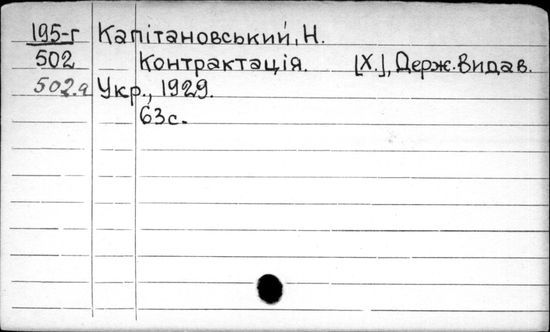 195-г Капітановський, Н.
502 Контрактація. [Х.], Держ. Видав.
502а Укр., 1929.
63с.